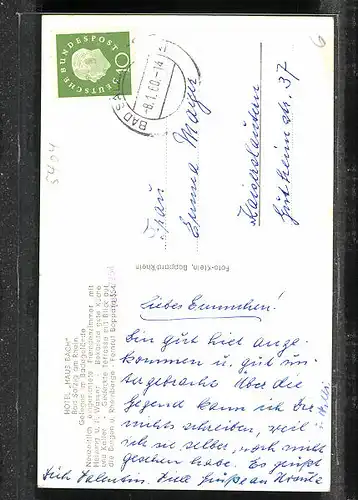 DEUTSCHE BUNDESPOST
10
BAD
-8.1.60.-14
6
5404
Frau
Emma Mayer
Kaiserslautern
Gutheim str. 37
Foto-Klein, Boppard/Rhein
HOTEL „HAUS BACH"
Bad Salzig am Rhein
Gelegen im Badegelände
Neuzeitlich eingerichtete Fremdenzimmer mit
Heizung u. fl. Wasser - Bekannte gute Küche
und Keller - Gedeckte Terrasse mit Blick auf
die Burgen u. Rheinberge - Fernruf Boppard
Liebes Emmchen!
Bin gut hier ange-
kommen u. gut un-
tergebracht. Über die
Gegend kann ich Dir
nichts schreiben, weil
ich sie selber noch nicht
gesehen habe. Es grüßt
Dich Valentin. Grüße an